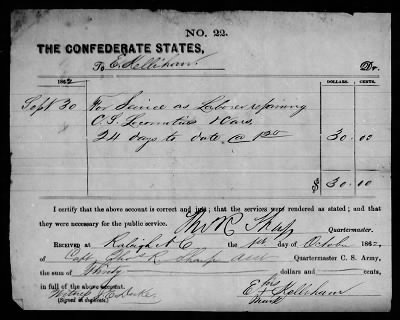 NO. 22.
THE CONFEDERATE STATES,
To E. Kelliham Dr.
1862 DOLLARS. CENTS.
Sept 30 For Service as Laborer repairing
C.S. Locomotives & Cars
24 days to date @ 1.25 30. 00
$ 30. 00
I certify that the above account is correct and just; that the services were rendered as stated; and that
they were necessary for the public service.
Thos R Sharp Quartermaster.
RECEIVED at Raleigh N C the 1st day of October 1862,
of Capt Thos R Sharp Quartermaster C. S. Army,
the sum of Thirty dollars and cents,
in full of the above account.
Witness
(Signed in duplicate.)
his
E X Kelliham
mark